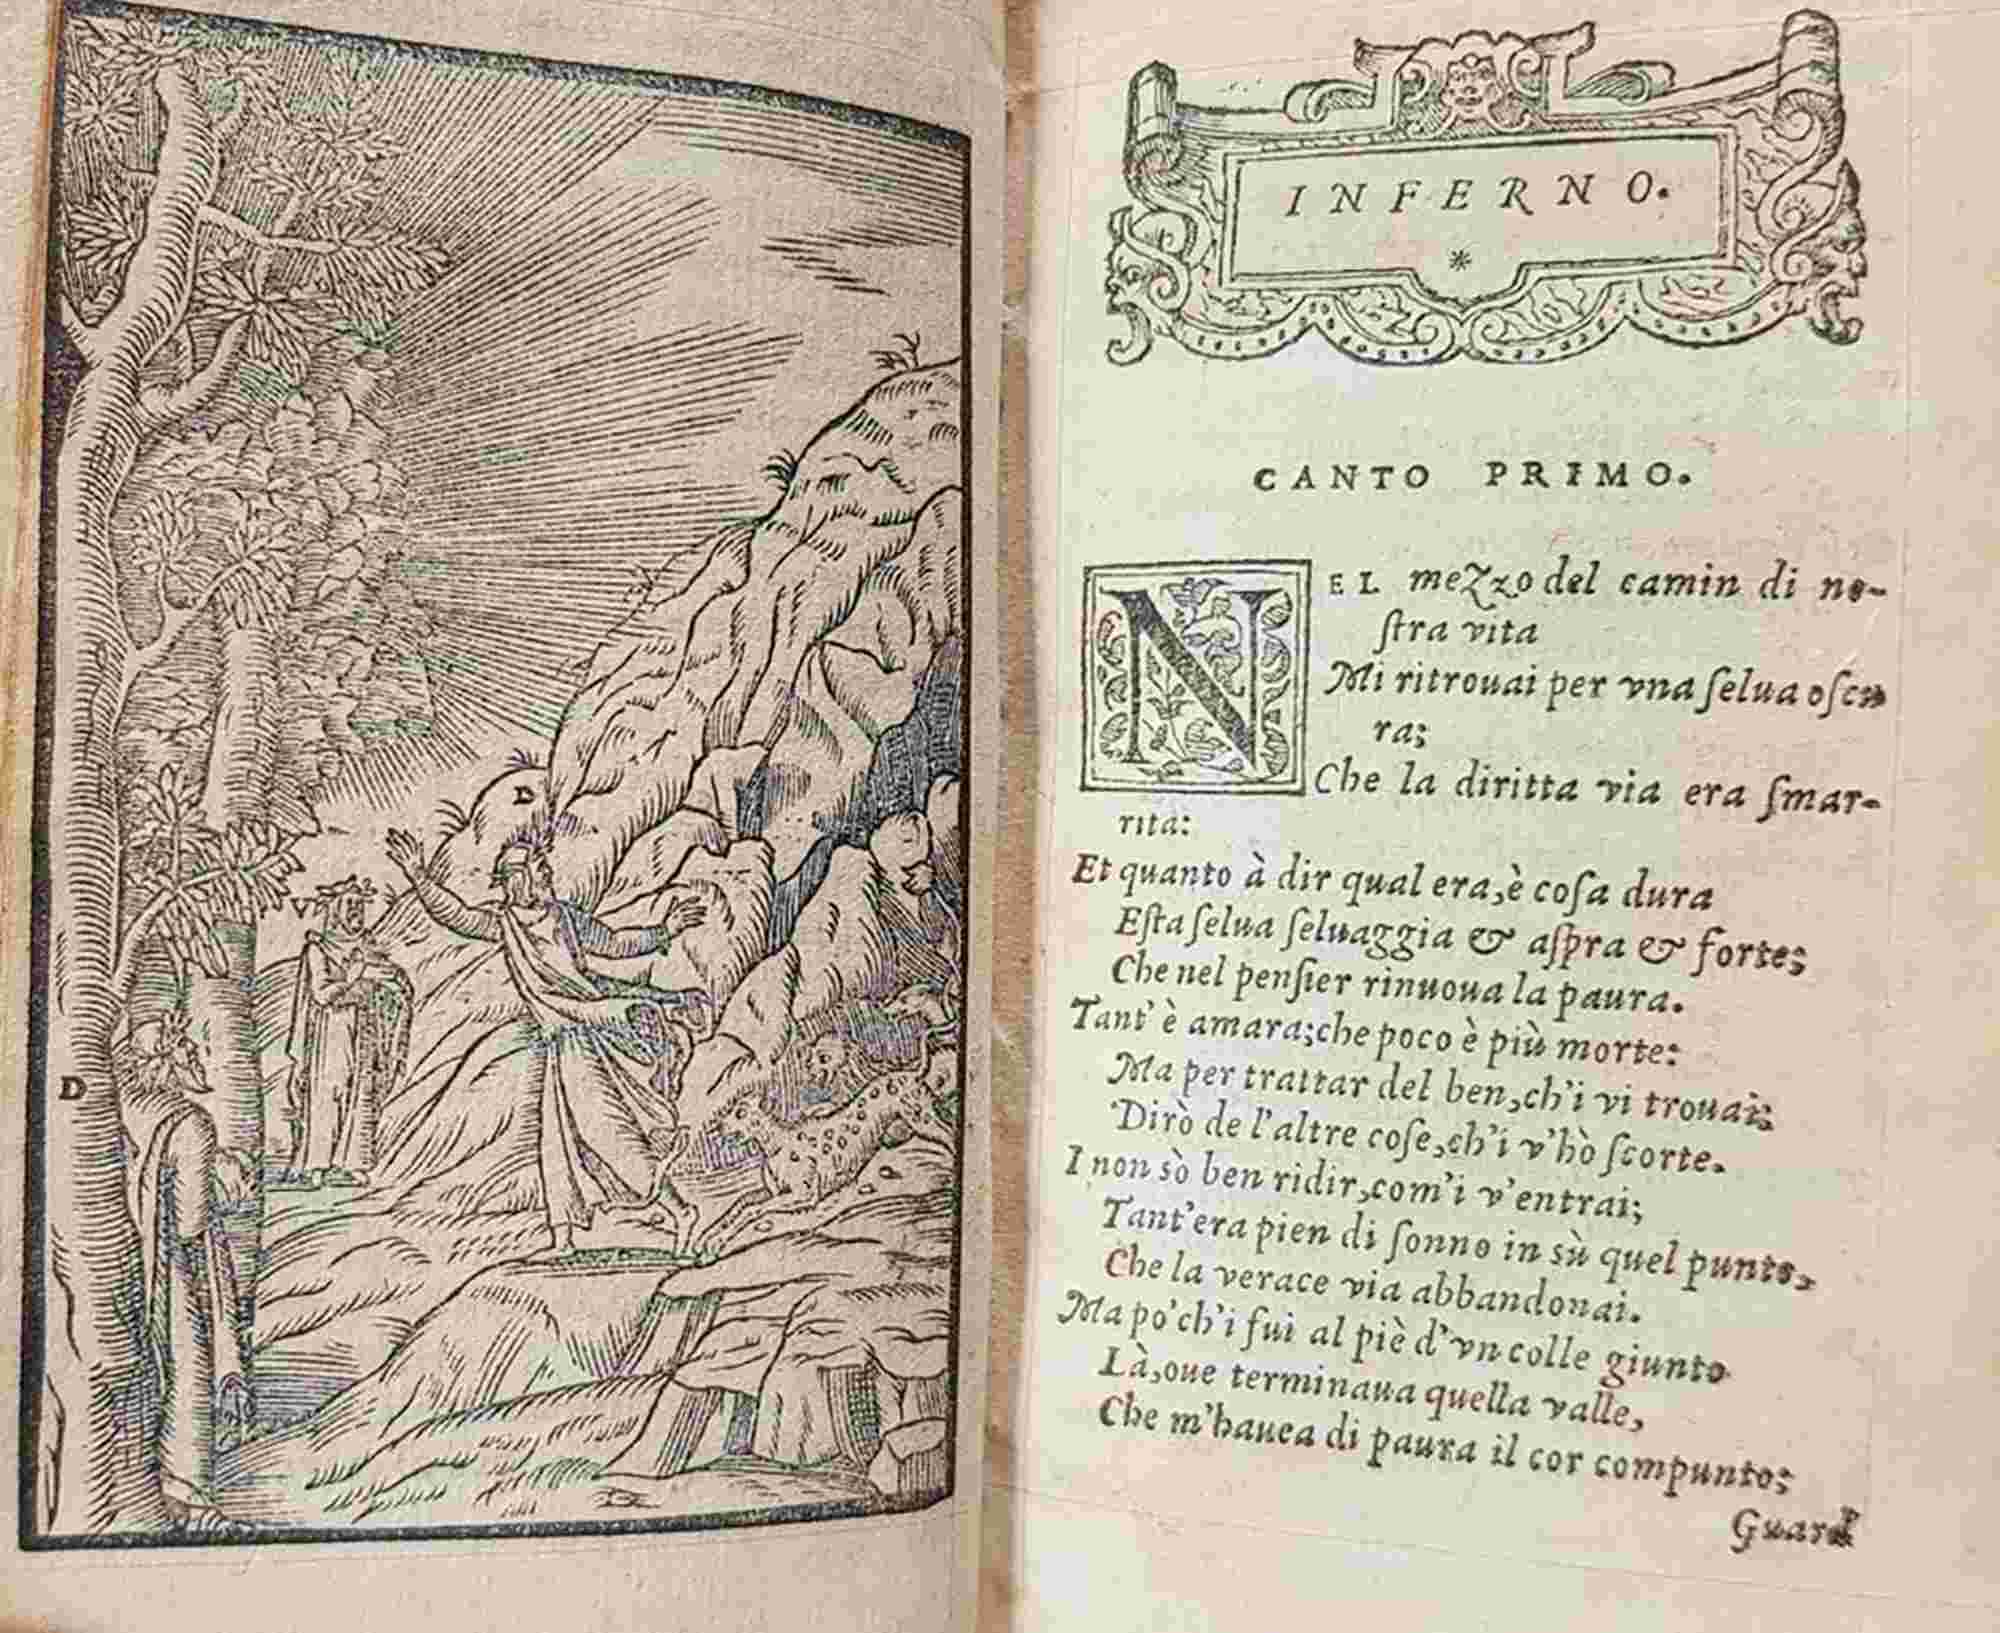 D
V
D
INFERNO.
*
CANTO PRIMO.
NEL mezzo del camin di no-
ſtra vita
Mi ritrouai per vna ſelua oſcu
ra;
Che la diritta via era ſmar-
rita:
Et quanto à dir qual era, è coſa dura
Eſta ſelua ſeluaggia & aſpra & forte;
Che nel penſier rinuoua la paura.
Tant' è amara; che poco è più morte:
Ma per trattar del ben, ch'i vi trouai;
Dirò de l'altre coſe, ch'i v'hò ſcorte.
I non sò ben ridir, com'i v'entrai;
Tant'era pien di ſonno in sù quel punto,
Che la verace via abbandonai.
Ma po'ch'i fui al piè d'vn colle giunto
Là, oue terminaua quella valle,
Che m'hauea di paura il cor compunto;
Guard